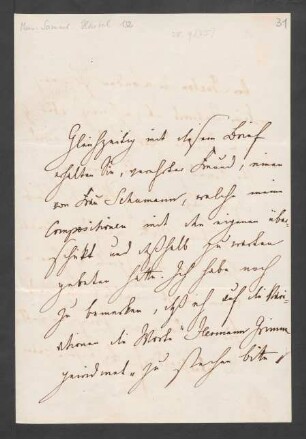 31
Gleichzeitig mit diesem Brief
erhalten Sie, geehrter Freund, einen
von Frau Schumann, welche meine
Compositionen mit den eigenen über-
schickt und deßhalb zu warten
gebeten hatte. Ich habe noch
zu bemerken, daß ich auf die Vari-
ationen die Worte Hermann Grimm
gewidmet, zu stechen bitte,